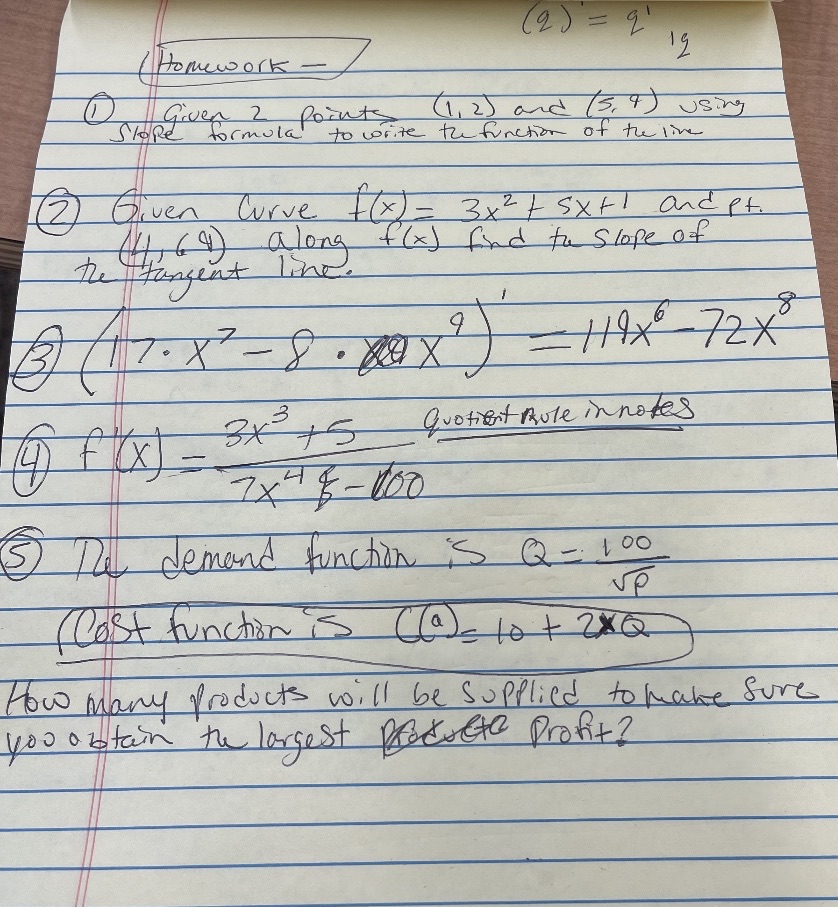 (q)' = q' 1q
Homework —
① Given 2 points (1,2) and (5,9) using
Slope formula to write the function of the line
② Given Curve f(x) = 3x² + 5x+1 and pt.
(4,69) along f(x) find the slope of
the tangent line.
③ (17·x⁷ – 8 · x⁹)' = 119x⁶ – 72x⁸
④ f'(x) = (3x³ + 5)/(7x⁴ – 100) Quotient Rule in notes
⑤ The demand function is Q = 100/√p
Cost function is C(Q) = 10 + 2xQ
How many products will be supplied to make sure
you obtain the largest Profit?